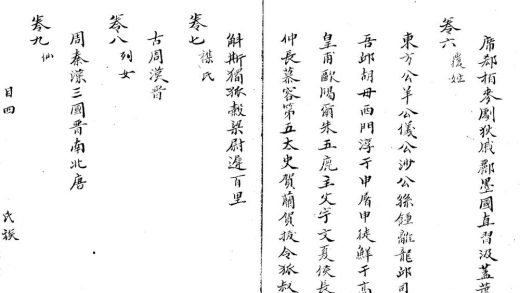 席郗栢麥劇狄戚鄴墨國直習汲蓋葉
卷六 複姓
東方公羊公儀公沙公孫鍾離龍邱司
吾邱胡母西門淳于申屠申徒鮮于高
皇甫歐陽爾朱五鹿主父宇文夏侯長
仲長慕容第五太史賀蘭賀拔令狐叔
斛斯獨孤穀梁尉遲百里
卷七 諜氏
古周漢晉
卷八 列女
周秦漢三國晉南北唐
卷九 仙
目四
氏族